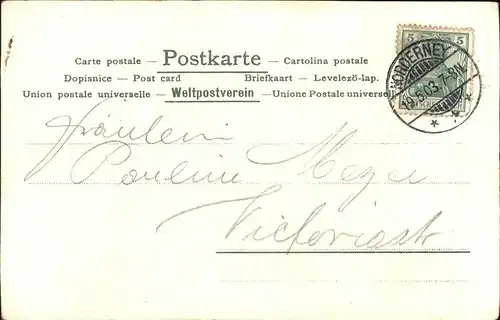 Carte postale — Postkarte — Cartolina postale
Dopisnice — Post card Briefkaart — Levelező-lap.
Union postale universelle — Weltpostverein — Unione Postale universell
5 5
NORDERNEY
19.5.03. 7-8N.
Fräulein
Pauline Meyer
Victoriastr